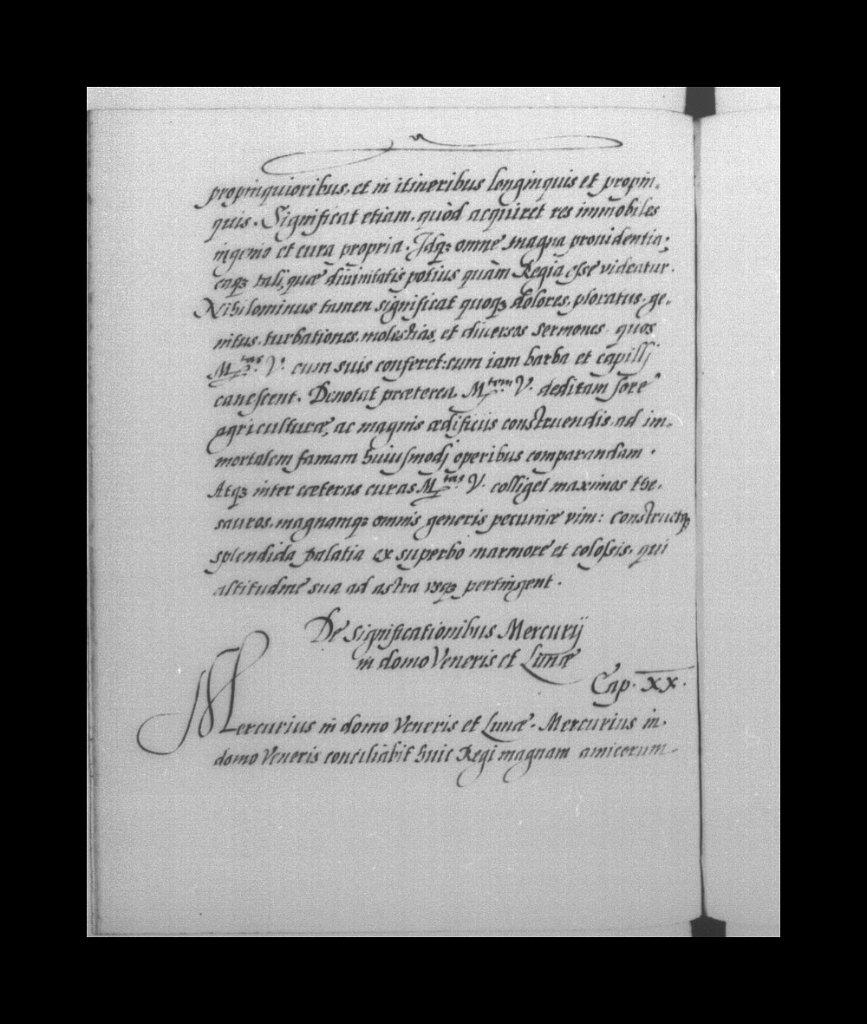 propinquioribus, et in itineribus longinquis et propin-
quis. Significat etiam, quòd acquiret res immobiles
ingenio et cura propria. Idq; omne magna prouidentia;
eaq; tali, quæ diuinitatis potius quàm Regia esse videatur.
Nihilominus tamen significat quoq; dolores, ploratus, ge-
mitus, turbationes, molestias, et diuersos sermones quos
M.tas V. cum suis conferet: cum iam barba et capillj
canescent. Denotat præterea, M.tem V. deditam fore
agriculturæ, ac magnis ædificijs construendis, ad im-
mortalem famam huiusmodj operibus comparandam.
Atq; inter cæteras curas M.tas V. colliget maximos the-
sauros, magnamq; omnis generis pecuniæ vim: construetq;
splendida palatia ex superbo marmore et colossis, qui
altitudine sua ad astra usq; pertingent.
De significationibus Mercurij
in domo Veneris et Lunæ
Cap. XX.
Mercurius in domo Veneris et Lunæ. Mercurius in
domo Veneris conciliabit huic Regi magnam amicorum